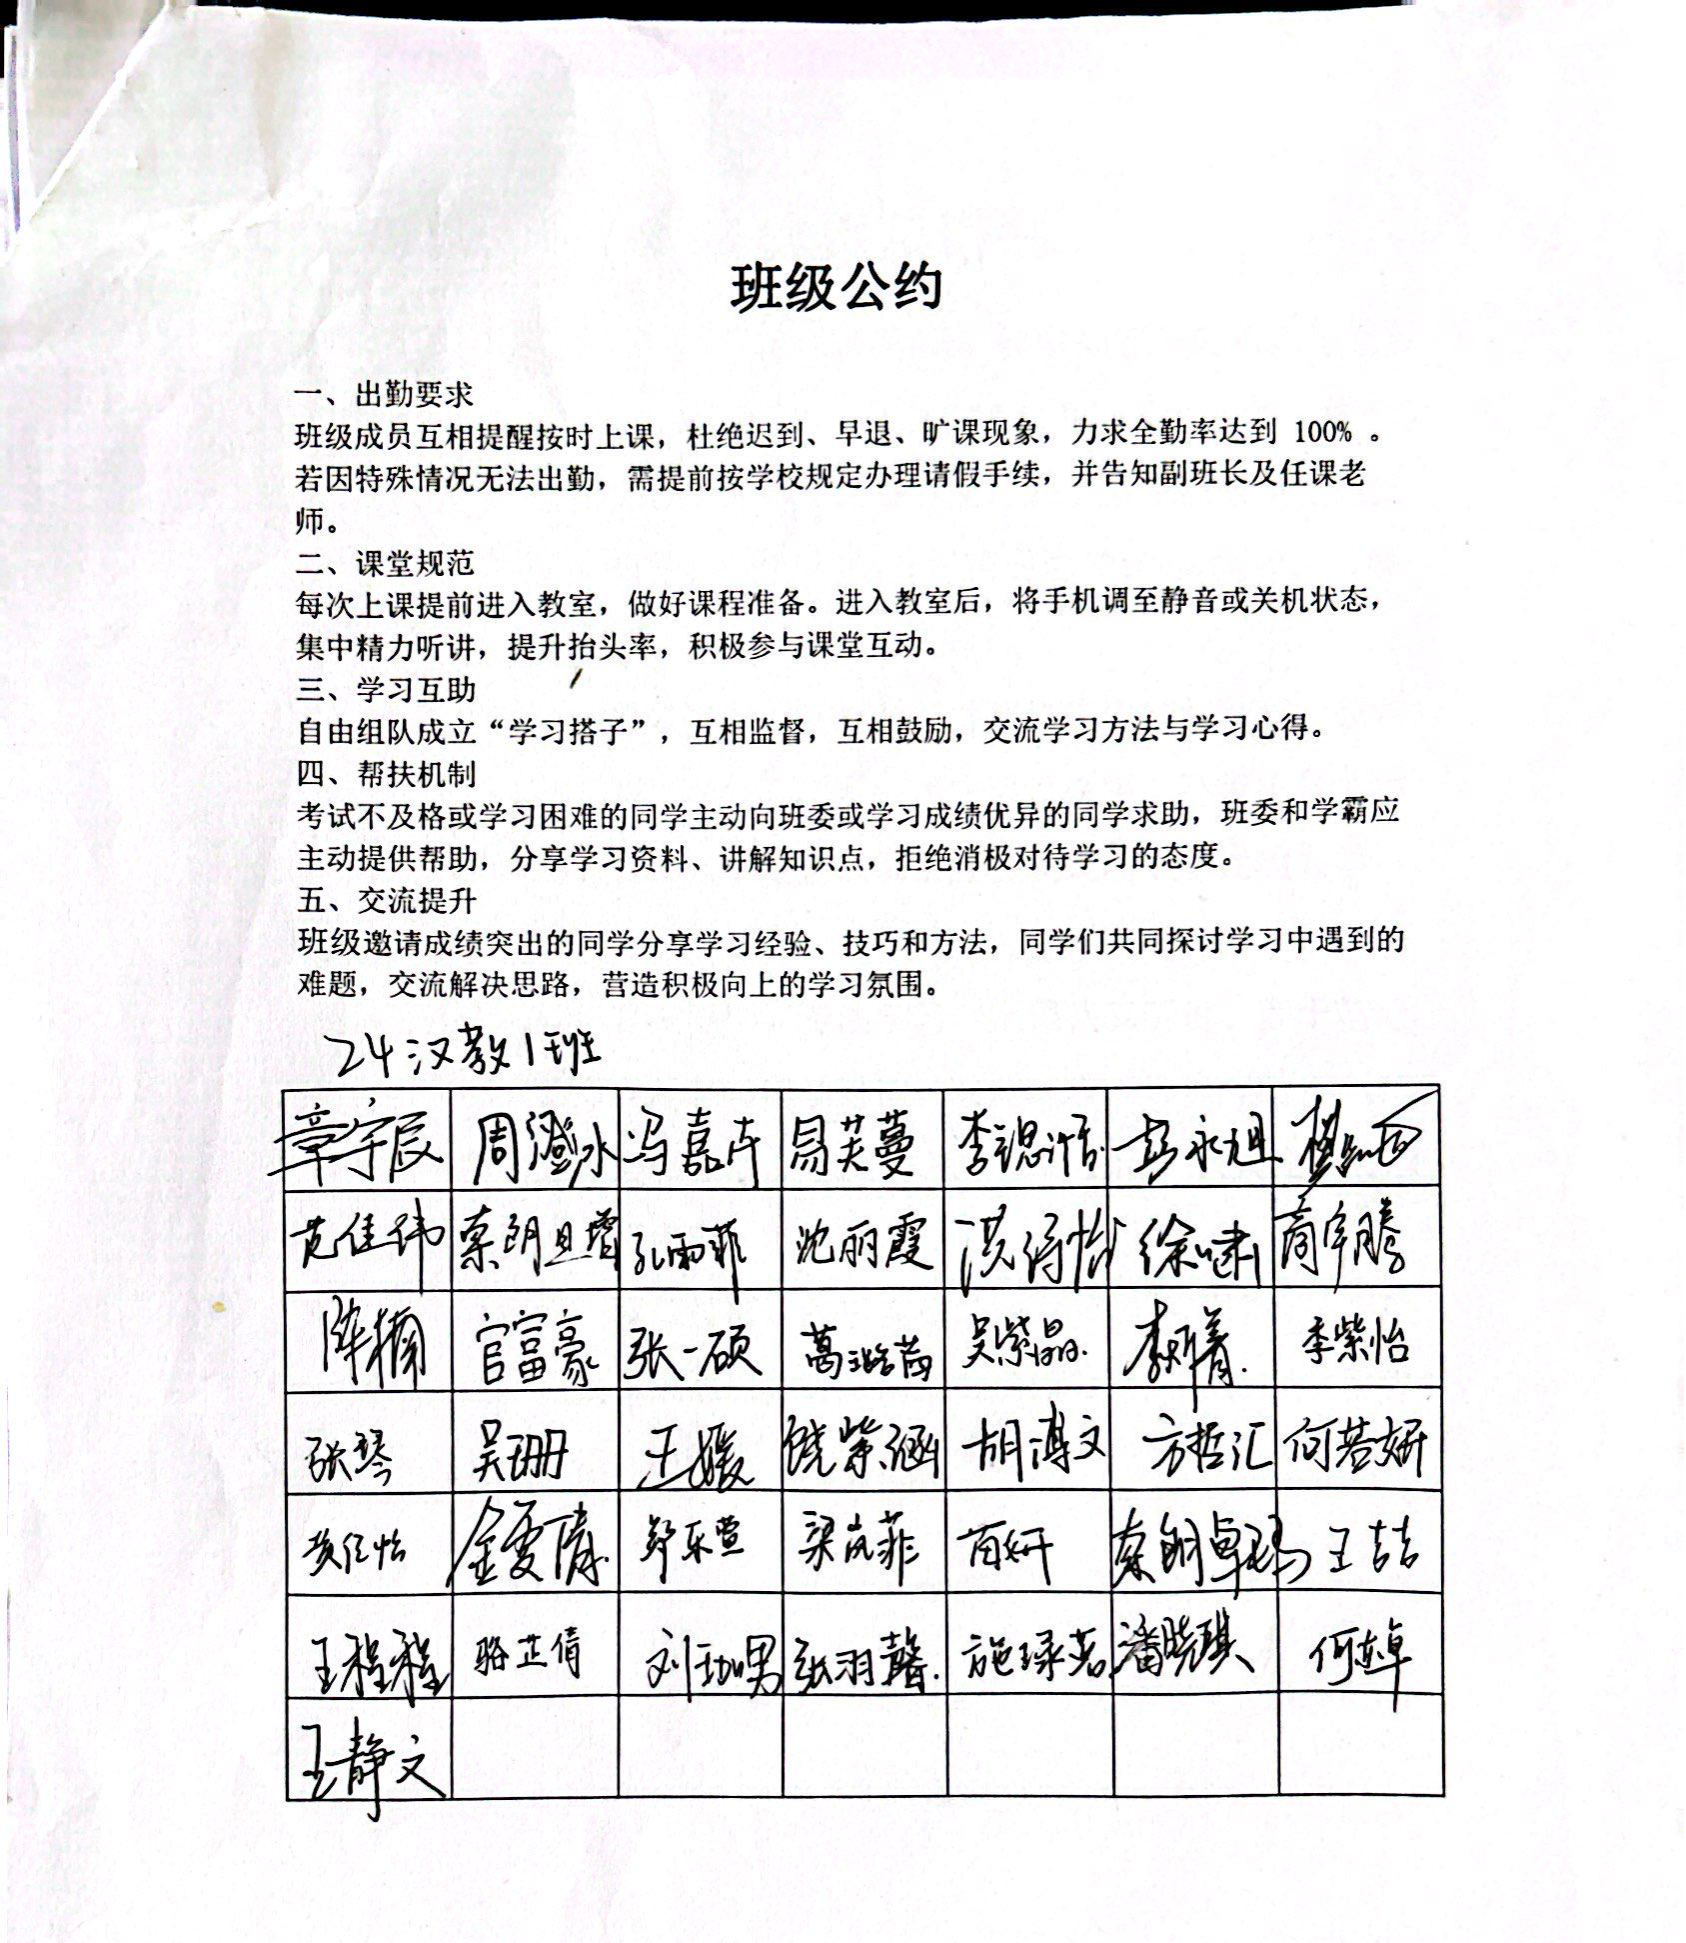 班级公约
一、出勤要求
班级成员互相提醒按时上课，杜绝迟到、早退、旷课现象，力求全勤率达到 100% 。
若因特殊情况无法出勤，需提前按学校规定办理请假手续，并告知副班长及任课老
师。
二、课堂规范
每次上课提前进入教室，做好课程准备。进入教室后，将手机调至静音或关机状态，
集中精力听讲，提升抬头率，积极参与课堂互动。
三、学习互助
自由组队成立“学习搭子”，互相监督，互相鼓励，交流学习方法与学习心得。
四、帮扶机制
考试不及格或学习困难的同学主动向班委或学习成绩优异的同学求助，班委和学霸应
主动提供帮助，分享学习资料、讲解知识点，拒绝消极对待学习的态度。
五、交流提升
班级邀请成绩突出的同学分享学习经验、技巧和方法，同学们共同探讨学习中遇到的
难题，交流解决思路，营造积极向上的学习氛围。
24汉教1班
章宇辰 周澄水 冯嘉卉 易芙蔓 李思恬 彭永旭
范佳伟 索朗旦增 孔雨菲 沈丽霞 洪诗怡 徐啸 商宇腾
陈楠 官富豪 张一硕 葛潞茜 吴紫晶 李紫怡
张琴 吴珊 王媛 饶紫涵 胡博文 方哲汇 何若妍
黄佳怡 金雯倩 舒乐萱 梁岚菲 苗妍 索朗卓玛 王喆
王程程 骆芷倩 刘劲男 张羽馨 施琭茗 潘晓琪 何卓
王静文